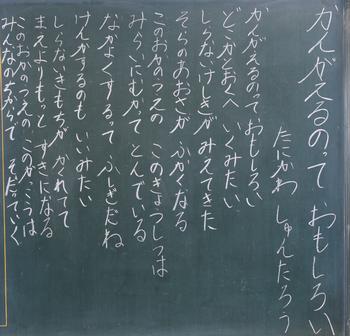 かんがえるのって おもしろい
たにかわ しゅんたろう
かんがえるのって おもしろい
どこかとおくへ いくみたい
しらないけしきが みえてきた
そらのあおさが ふかくなる
このおかのうえの このきょうしつは
みらいにむかって とんでいる
なかよくするって ふしぎだね
けんかするのも いいみたい
しらないきもちが かくれてて
まえよりもっと すきになる
このおかのうえの このがっこうは
みんなのちからで そだっていく